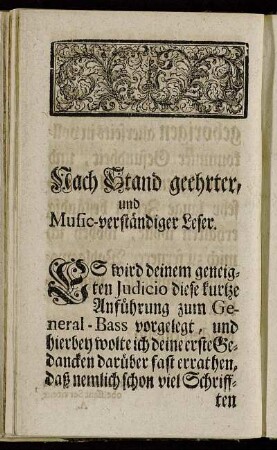 Nach Stand geehrter,
und
Music-verständiger Leser.
ES wird deinem geneig-
ten Judicio diese kurtze
Anführung zum Ge-
neral-Bass vorgelegt, und
hierbey wolte ich deine erste Ge-
dancken darüber fast errathen,
daß nemlich schon viel Schriff-
ten